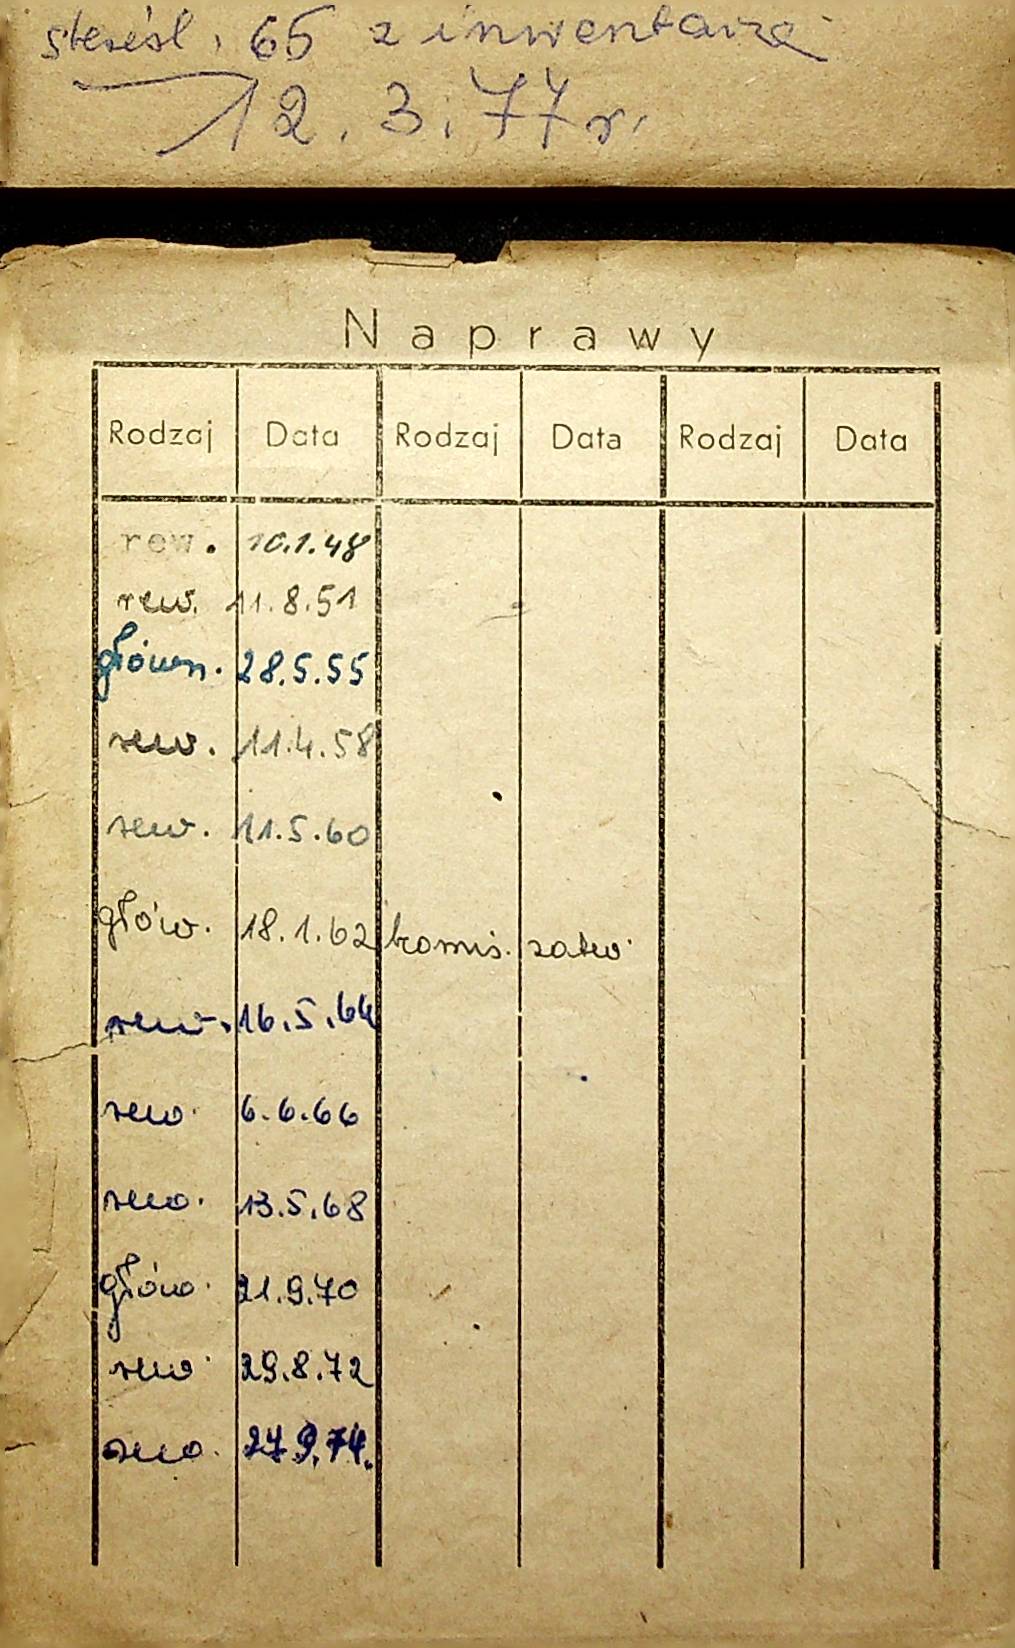 65 z inwentarza
12.3.77r.
Naprawy
Rodzaj Data Rodzaj Data Rodzaj Data
rew. 10.1.48
rew. 11.8.51
główn. 28.5.55
rew. 11.4.58
rew. 11.5.60
głów. 18.1.62
rew. 16.5.64
rew. 6.6.66
rew. 13.5.68
głów. 21.9.70
rew. 29.8.72
rew. 27.9.74.